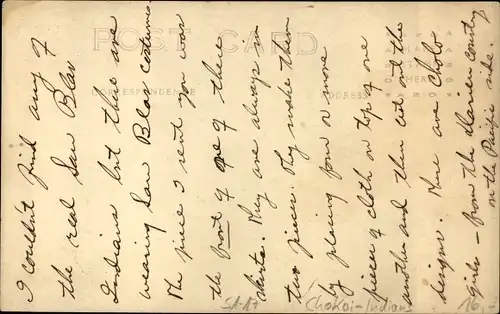 I couldn't find any of
the real San Blas
Indians but these are
wearing San Blas costumes
The piece I sent you was
the front of one of their
skirts. They are always in
two pieces. They make them
by placing four or more
pieces of cloth on top of one
another and then cut out the
designs. These are cholo
girls - from the Darien country
on the Pacific side.
POST CARD
CORRESPONDENCE
ADDRESS
Chokoi-Indians